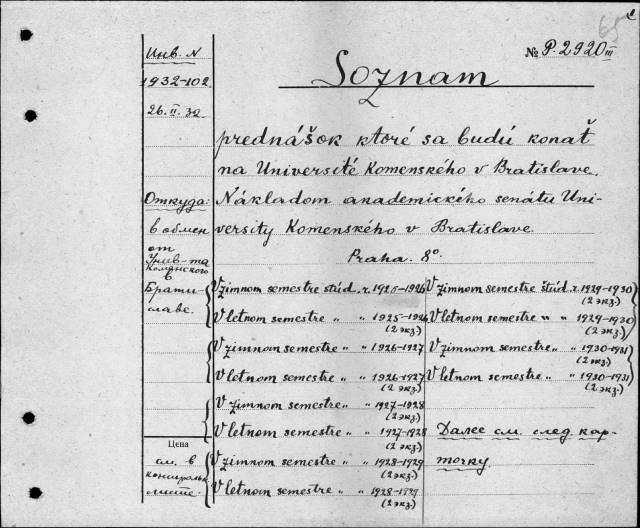 65
№ P. 2920 III
Инв. N
1932-102
26. II. 32
Откуда:
в обмен
от
Унив-та
Коменского
в
Брати-
славе.
Цена
см. в
контрольн.
листе.
Soznam
prednášok ktoré sa budú konať
na Université Komenského v Bratislave.
Nákladom anademického senátu Uni-
versity Komenského v Bratislave.
Praha. 8°.
V zimnom semestre štúd. r. 1925-1926
V letnom semestre „ „ 1925-1926
(2 экз.)
V zimnom semestre „ „ 1926-1927
V letnom semestre „ „ 1926-1927
(2 экз.)
V zimnom semestre „ „ 1927-1928
V letnom semestre „ „ 1927-1928
(2 экз.)
V zimnom semestre „ „ 1928-1929
(2 экз.)
V letnom semestre „ „ 1928-1929
V zimnom semestre štúd. r. 1929-1930
(2 экз.)
V letnom semestre „ „ 1929-1930
(2 экз.)
V zimnom semestre „ „ 1930-1931
(2 экз.)
V letnom semestre „ „ 1930-1931
(2 экз.)
Далее см. след. кар-
точку.